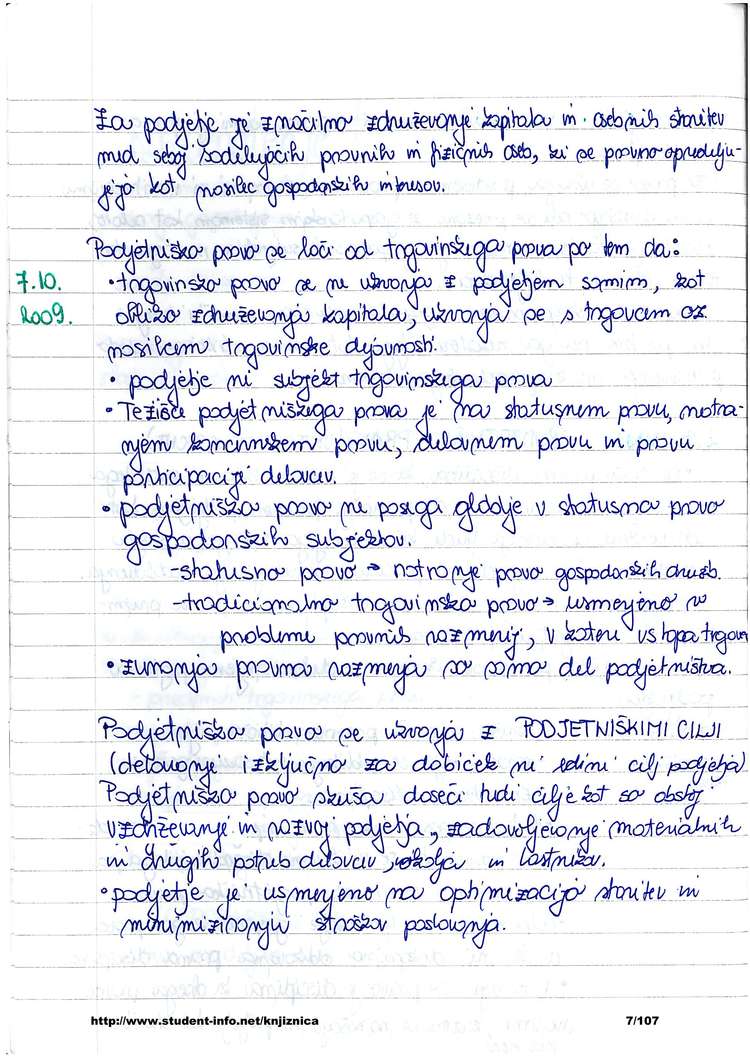 Za podjetje je značilno združevanje kapitala in osebnih storitev
med seboj sodelujočih pravnih in fizičnih oseb, ki se pravno opredelju-
jejo kot nosilec gospodarskih interesov.
Podjetniško pravo se loči od trgovinskega prava po tem da:
7.10.
2009.
• trgovinsko pravo se ne ukvarja z podjetjem samim, kot
obliko združevanja kapitala, ukvarja se s trgovcem oz.
nosilcem trgovinske dejavnosti.
• podjetje ni subjekt trgovinskega prava
• Težišče podjetniškega prava je na statusnem pravu, notra-
njem koncernskem pravu, delovnem pravu in pravu
participacije delavcev.
• podjetniško pravo ne posega globlje v statusno pravo
gospodarskih subjektov.
- statusno pravo → notranje pravo gospodarskih družb.
- tradicionalno trgovinsko pravo → usmerjeno v
probleme pravnih razmerij, v katere vstopa trgovec
• zunanja pravna razmerja so samo del podjetništva.
Podjetniško pravo se ukvarja z PODJETNIŠKIMI CILJI
(delovanje izključno za dobiček ni edini cilj podjetja)
Podjetniško pravo skuša doseči tudi cilje kot so obstoj
vzdrževanje in razvoj podjetja, zadovoljevanje materialnih
in drugih potreb delavcev, okolja in lastnika.
• podjetje je usmerjeno na optimizacijo storitev in
minimiziranju stroškov poslovanja.
http://www.student-info.net/knjiznica
7/107